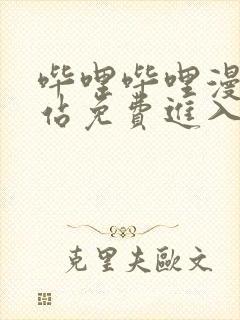 哔哩哔哩漫
佔免費進入
克里夫歐文